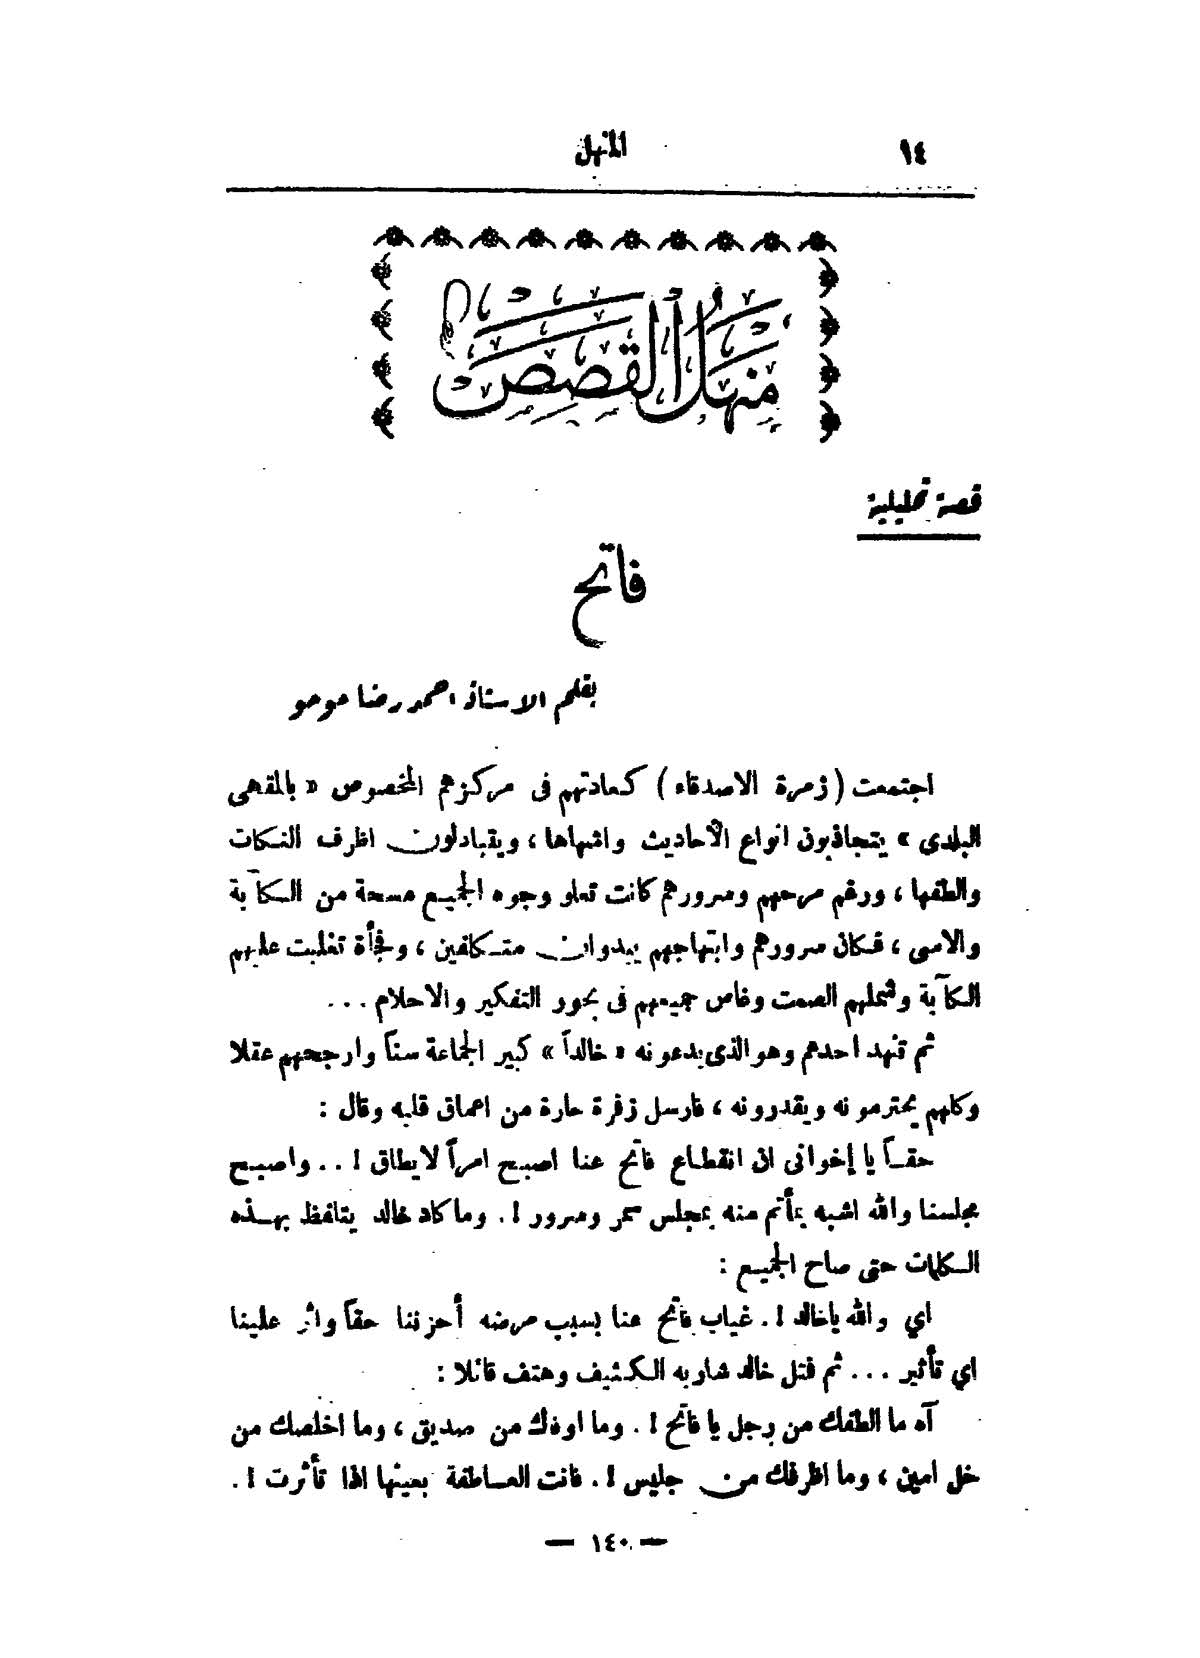 ١٤ المنهل
منهل القصص
قصة تحليلية
فاتح
بقلم الاستاذ احمد رضا حوحو
اجتمعت ( زمرة الاصدقاء ) كعادتهم فى مركزهم المخصوص « بالمقهى
البلدى » يتجاذبون انواع الأحاديث واشهاها ، ويتبادلون اظرف النكات
والطفها ، ورغم مرحهم ومرورهم كانت تعلو وجوه الجميع مسحة من الكآبة
والاسى ، فكان سرورهم وابتهاجهم يبدوان متكافين ، وفجأة تغلبت عليهم
الكآبة وشملهم الصمت وغاص جميعهم فى بحور التفكير والاحلام ...
ثم تنهد احدهم وهو الذى يدعونه « خالداً » كبير الجماعة سناً وارجحهم عقلا
وكلهم يحترمونه ويقدرونه ، فارسل زفرة حارة من اعماق قلبه وقال :
حقـاً يا إخوانى ان انقطـاع فاتح عنا اصبح امراً لايطاق ! .. واصبح
مجلسنا والله اشبه بمأتم منه بمجلس سمر وسرور ! . وما كاد خالد يتلفظ بهـذه
الكلمات حتى صاح الجميع :
اي والله ياخالد ! . غياب فاتح عنا بسبب مرضه أحزننا حقاً واثر علينا
اي تأثير ... ثم فتل خالد شاربه الكثيف وهتف قائلا :
آه ما الطفك من رجل يا فاتح ! . وما اودك من صديق ، وما اخلصك من
خل امين ، وما اظرفك من جليس ! . فانت العـاطفة بعينها اذا تأثرت ! .
— ١٤٠ —